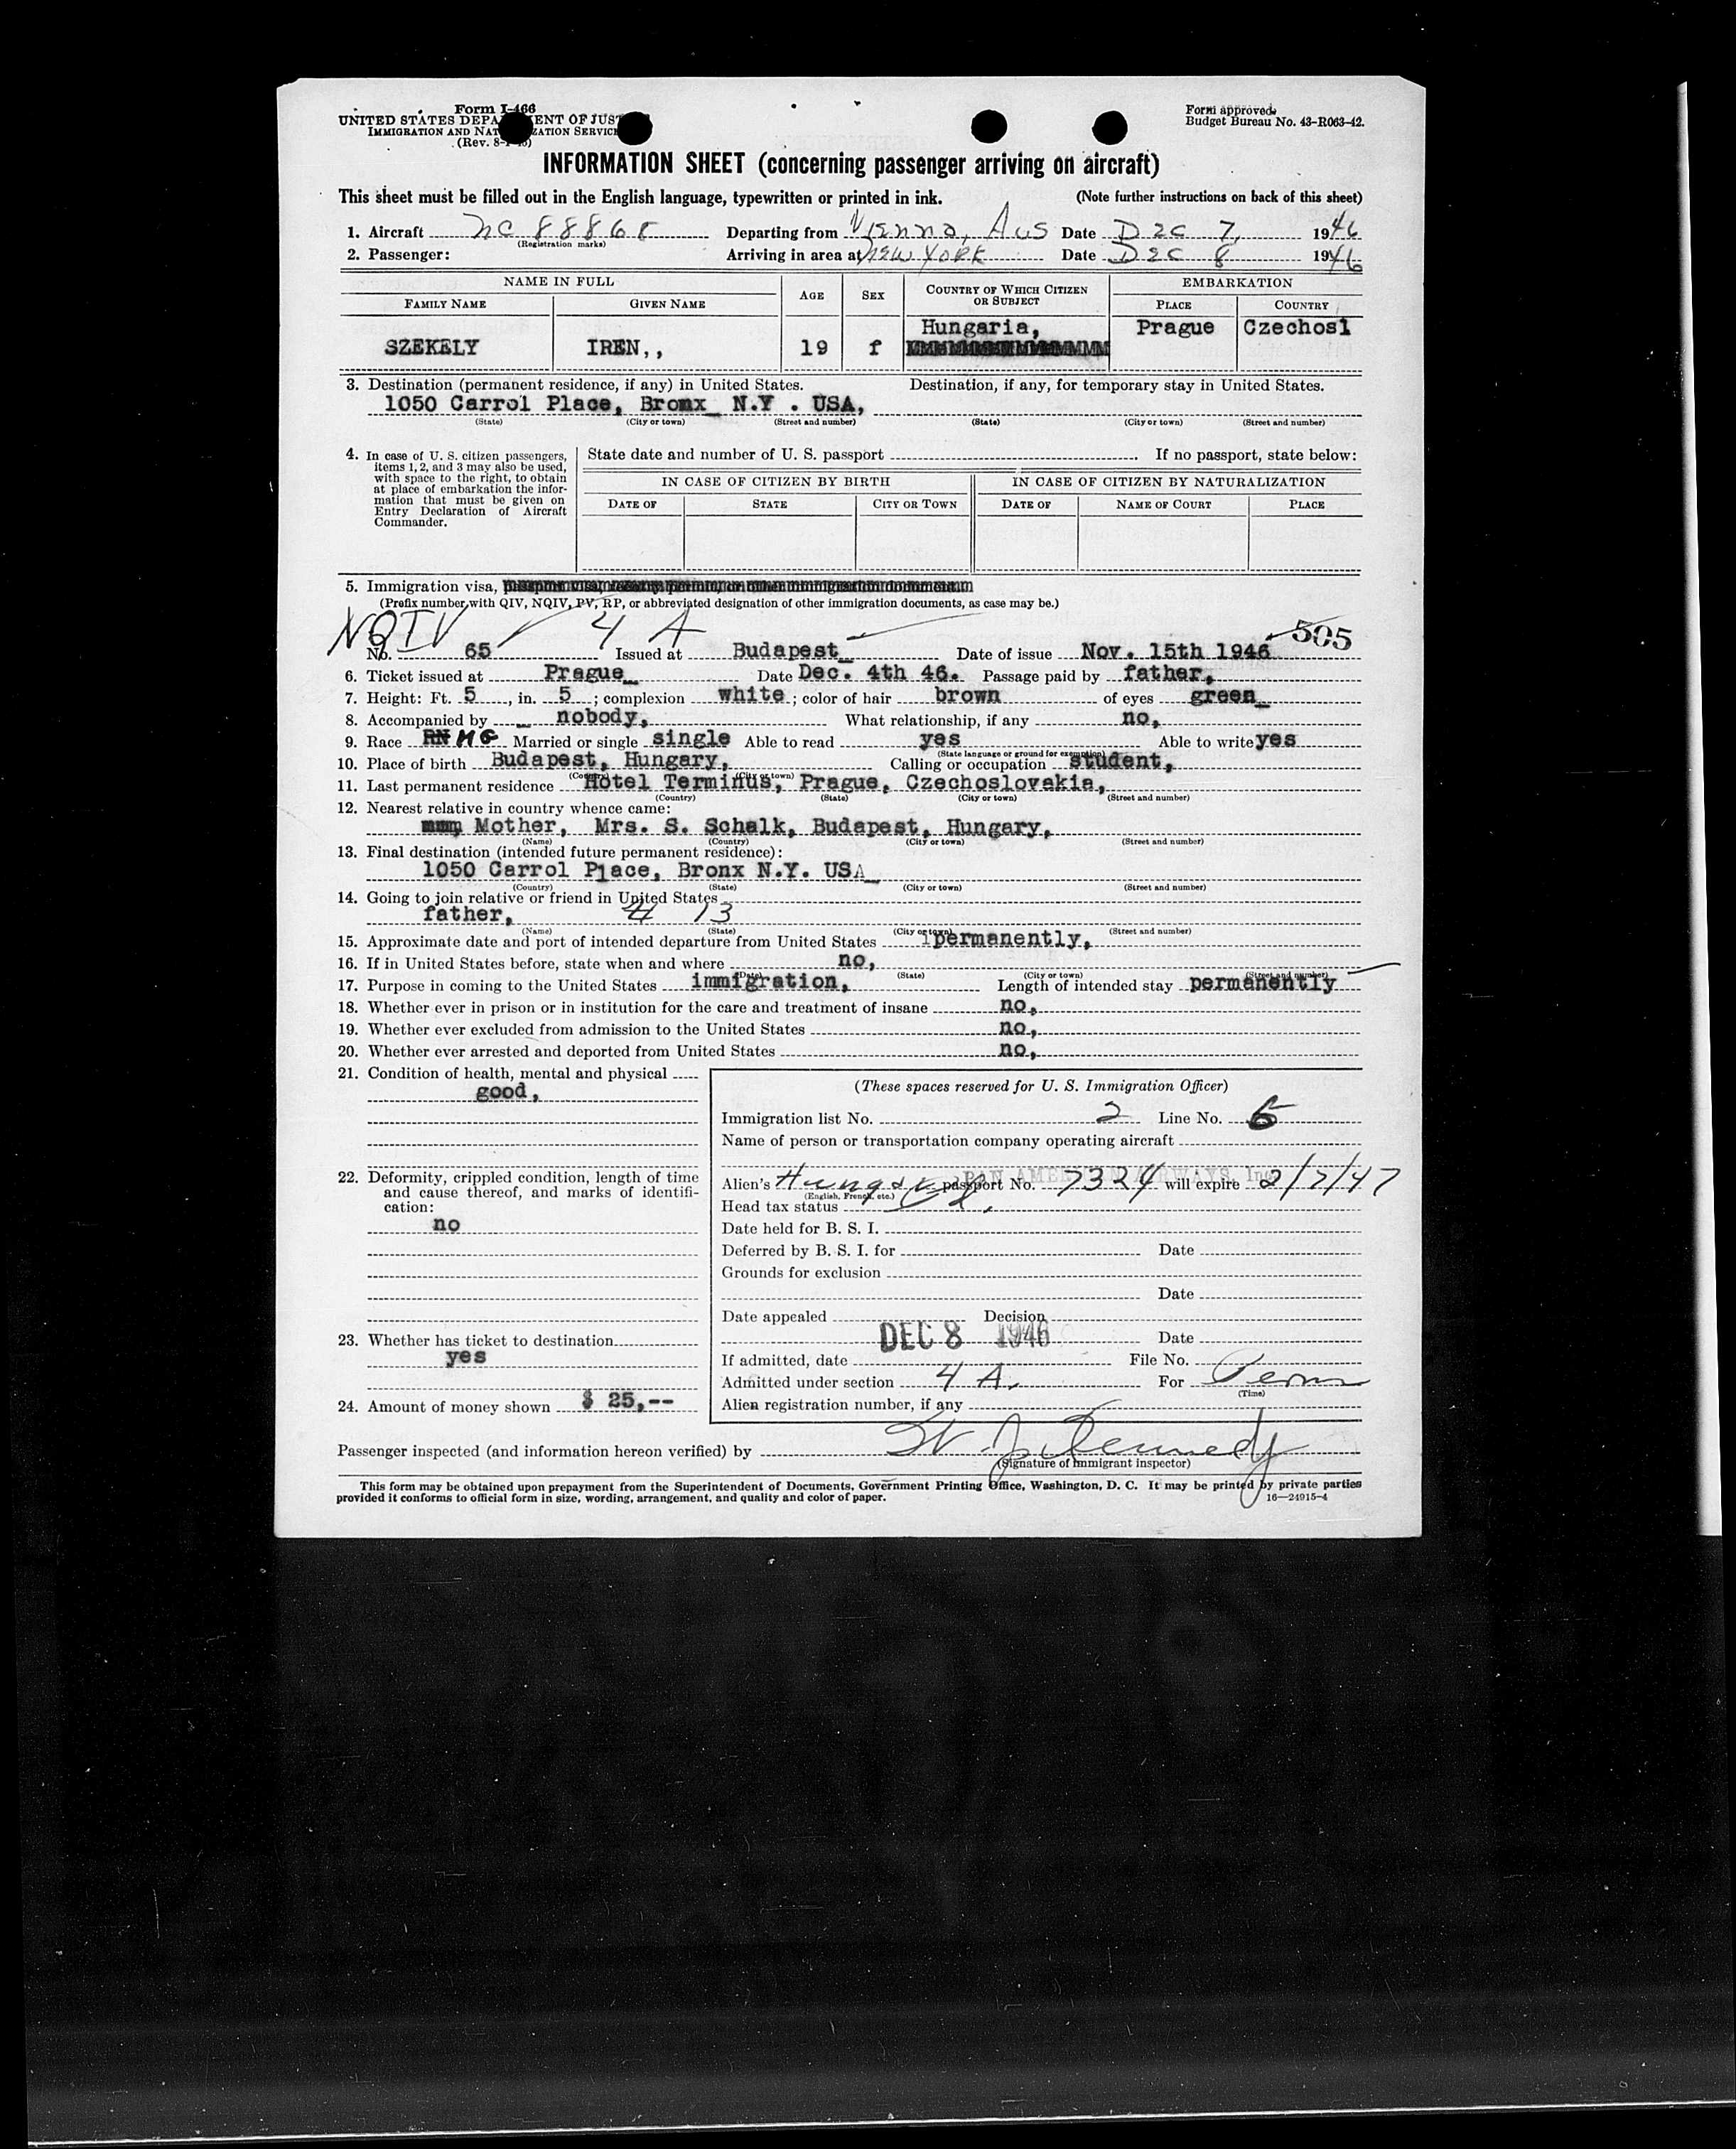 Form I-466
UNITED STATES DEPA ENT OF JUS
IMMIGRATION AND NAT ZATION SERVIC
(Rev. 8-
Form approved.
Budget Bureau No. 43-R063-42.
INFORMATION SHEET (concerning passenger arriving on aircraft)
This sheet must be filled out in the English language, typewritten or printed in ink. (Note further instructions on back of this sheet)
1. Aircraft NC 88868 Departing from Vienna, Aus Date Dec 7, 1946
(Registration marks)
2. Passenger: Arriving in area at New York Date Dec 8 1946
NAME IN FULL AGE SEX COUNTRY OF WHICH CITIZEN OR SUBJECT EMBARKATION
FAMILY NAME GIVEN NAME PLACE COUNTRY
Hungaria, Prague Czechosl
SZEKELY IREN,, 19 f
3. Destination (permanent residence, if any) in United States. Destination, if any, for temporary stay in United States.
1050 Carrol Place, Bronx N.Y . USA,
(State) (City or town) (Street and number) (State) (City or town) (Street and number)
4. In case of U. S. citizen passengers, items 1, 2, and 3 may also be used, with space to the right, to obtain at place of embarkation the information that must be given on Entry Declaration of Aircraft Commander.
State date and number of U. S. passport . If no passport, state below:
IN CASE OF CITIZEN BY BIRTH IN CASE OF CITIZEN BY NATURALIZATION
DATE OF STATE CITY OR TOWN DATE OF NAME OF COURT PLACE
5. Immigration visa,
(Prefix number with QIV, NQIV, PV, RP, or abbreviated designation of other immigration documents, as case may be.)
NQIV 4 A 505
No. 65 Issued at Budapest Date of issue Nov. 15th 1946
6. Ticket issued at Prague Date Dec. 4th 46. Passage paid by father,
7. Height: Ft. 5, in. 5; complexion white; color of hair brown of eyes green
8. Accompanied by nobody, What relationship, if any no,
9. Race MG Married or single single Able to read yes Able to write yes
(State language or ground for exemption)
10. Place of birth Budapest, Hungary, Calling or occupation student,
(Country) (City or town)
11. Last permanent residence Hotel Terminus, Prague, Czechoslovakia,
(Country) (State) (City or town) (Street and number)
12. Nearest relative in country whence came:
Mother, Mrs. S. Schalk, Budapest, Hungary,
(Name) (Country) (City or town) (Street and number)
13. Final destination (intended future permanent residence):
1050 Carrol Place, Bronx N.Y. USA
(Country) (State) (City or town) (Street and number)
14. Going to join relative or friend in United States
father, 13
(Name) (State) (City or town) (Street and number)
15. Approximate date and port of intended departure from United States permanently,
16. If in United States before, state when and where no,
(Date) (State) (City or town) (Street and number)
17. Purpose in coming to the United States immigration, Length of intended stay permanently
18. Whether ever in prison or in institution for the care and treatment of insane no,
19. Whether ever excluded from admission to the United States no,
20. Whether ever arrested and deported from United States no,
21. Condition of health, mental and physical
good,
22. Deformity, crippled condition, length of time and cause thereof, and marks of identification:
no
23. Whether has ticket to destination
yes
24. Amount of money shown $ 25,--
(These spaces reserved for U. S. Immigration Officer)
Immigration list No. 2 Line No. 6
Name of person or transportation company operating aircraft
PAN AMERICAN AIRWAYS, Inc.
Alien's passport No. 7324 will expire 2/7/47
(English, French, etc.)
Head tax status
Date held for B. S. I.
Deferred by B. S. I. for Date
Grounds for exclusion
Date
Date appealed Decision
DEC 8 1946 Date
If admitted, date File No.
Admitted under section 4 A. For Perm
(Time)
Alien registration number, if any
Passenger inspected (and information hereon verified) by Kennedy
(Signature of Immigrant inspector)
This form may be obtained upon prepayment from the Superintendent of Documents, Government Printing Office, Washington, D. C. It may be printed by private parties
provided it conforms to official form in size, wording, arrangement, and quality and color of paper. 16—24915-4